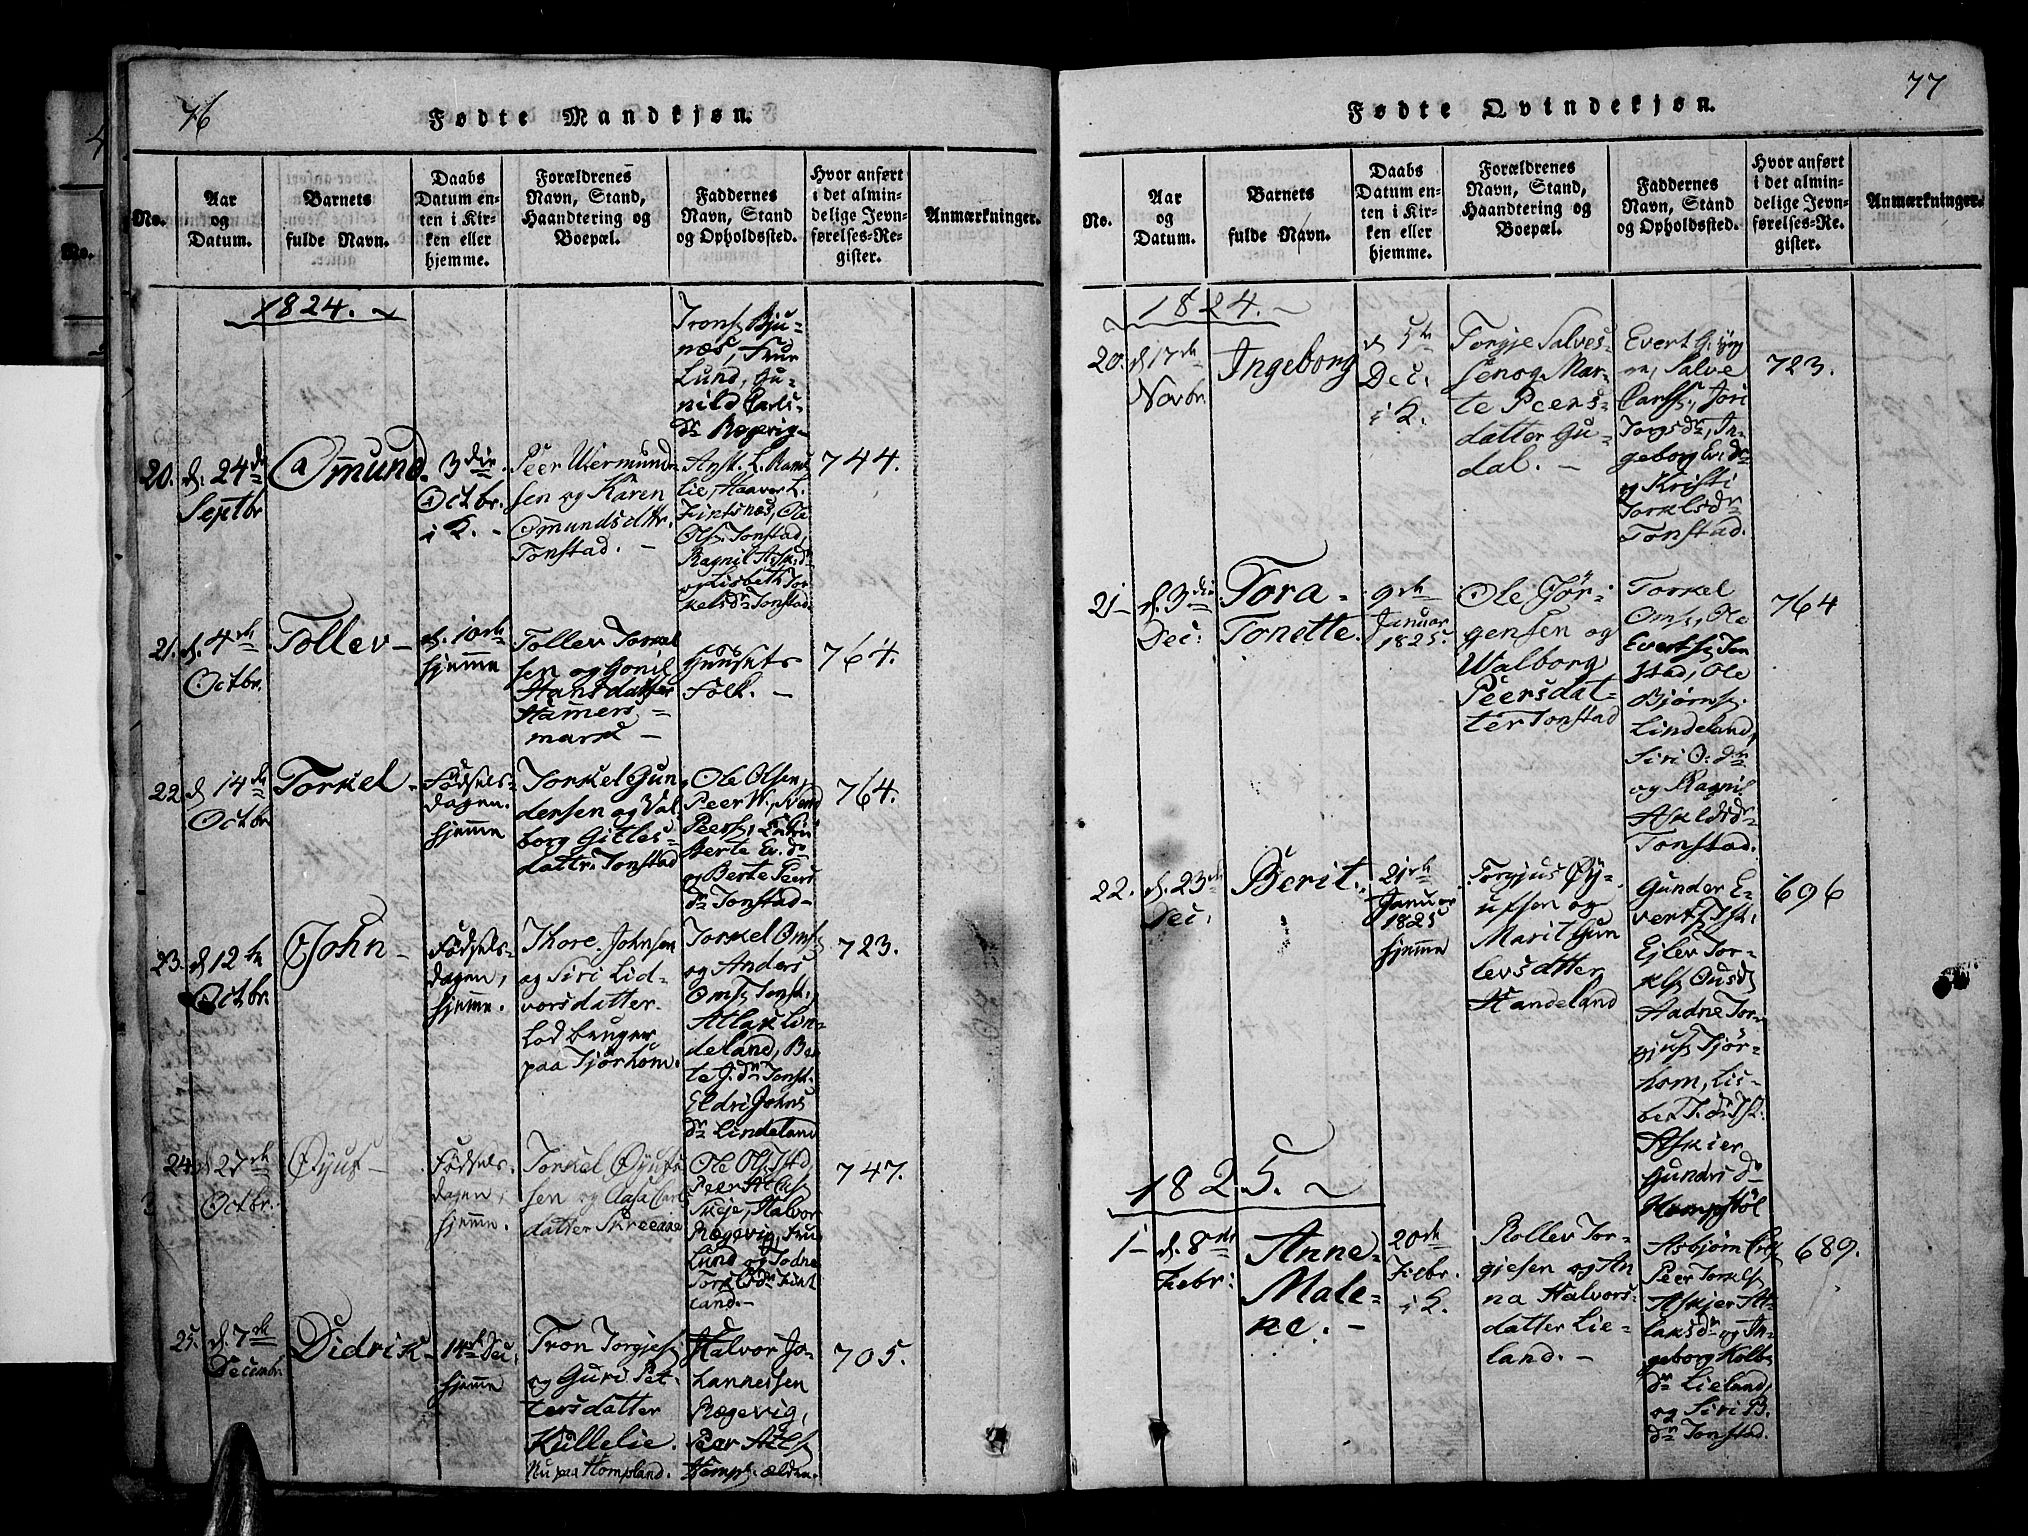 76
Fødte Mandkjøn.
No.
Aar og Datum.
Barnets fulde Navn.
Daabs Datum enten i Kirken eller hjemme.
Forældrenes Navn, Stand, Haandtering og Boepæl.
Faddernes Navn, Stand og Opholdssted.
Hvor anført i det almindelige Jevnførelses-Register.
Anmærkninger.
1824.
Trons. Bju-
næs,
Lund, Gu-
nild Carls-
dr. Røgevig
20. d. 24de
Septbr
Omund
3die
Octbr.
i K.
Peer Wermund-
sen og Karen
Omundsdttr.
Tonstad.
Haaver L.
Fintsnæs, Ole
Ols. Tonstad,
Ragnil
og Lisbeth Tor-
kelsdr Tonstad.
744.
21. d. 4de
Octbr.
Tollev
d. 10de
hjemme
Tollev Torkel
sen og Gonil
Hansdatter
Hamers-
mark
Huusets
Folk.
764.
22 d 14de
Octbr
Torkel
Fødsels-
dagen.
hjemme
Torkel Gun
dersen og Val
borg Gitles-
dattr. Tonstad
Ole Olsen,
Peer W., Svend
Peers,
Berte Ev. dr
og Berte Peers
dr. Tonstad
764.
23. d 12te
Octbr
John
Fødsels-
dagen,
hjemme.
Thore Johnsen
og Siri Lid-
vorsdatter
Lod bruger
paa Tjørhom.
Torkel Oms.
og Anders
Oms. Tonst.,
Atlak Lin-
deland, Ber
te J. dr Tonst.
Eldri Johns
dr Lindeland
723.
24. d 27de
Octbr.
Øyuf
Fødsels-
dagen,
hjemme.
Torkel Øyuf
sen og Aasa Carl
datter Skreeaae
Ole Ols. Tstd,
Peer Atlaks
Skeje, Halvor
Røgevig,
Lund og Todne
Torkelsdr. Fint
land.
747.
25. d. 7de
Decembr
Didrik
14de Dec.
hjemme
Tron Torgjes
og Guri Pet-
tersdatter
Kullelie.
Nu paa Hompland.
Halvor Jo-
hannessen
Røgevig,
Peer Atls.
Homp.
705.
77
Fødte Qvindekjøn.
No.
Aar og Datum.
Barnets fulde Navn.
Daabs Datum enten i Kirken eller hjemme.
Forældrenes Navn, Stand, Haandtering og Boepæl.
Faddernes Navn, Stand og Opholdssted.
Hvor anført i det almindelige Jevnførelses-Register.
Anmærkninger.
1824.
20. d. 17de
Novbr
Ingeborg
d 5te
Dec.
i K.
Torgje Salves-
sen og Mar-
te Peers-
datter Gu-
dal.
Evert
Salve
Carls., Jori
Torgsdr, In-
geborg Ev. dr
og Kristi
Torkelsdr
Tonstad.
723.
21 d. 3die
Dec.
Tora
Tonette.
9de
Januar
1825.
Ole Jør-
gensen og
Walborg
Peersdat-
ter Tonstad
Torkel
Oms, Ole
Everts, Ton
stad, Ole
Bjørns.
Lindeland,
Siri O. dr
og Ragnil
Askildsdr
Tonstad.
764
22. d. 23de
Dec.
Berit.
21de
Januar
1825
hjemme
Torgjus Øy-
ufsen og
Marit Gun
levsdatter
Handeland
Gunder E-
verts. Tst.
Ejlev Tor-
kels Ousd.
Aadne Tor-
gjus. Tjør-
hom, Lis-
bet T. dr Tst.
Askier
Gundrs dr
Hompstøl
696
1825.
1 d. 8de
Febr.
Anne
Male-
ne.
20de
Febr.
i K.
Rollev Tor-
giesen og An
na Halvors-
datter Lie-
land.
Asbjørn
Peer Torkels
Askjer At-
laksdr og In-
geborg Kolb.
dr. Lieland,
og Siri B.
dr. Tonstad.
689.